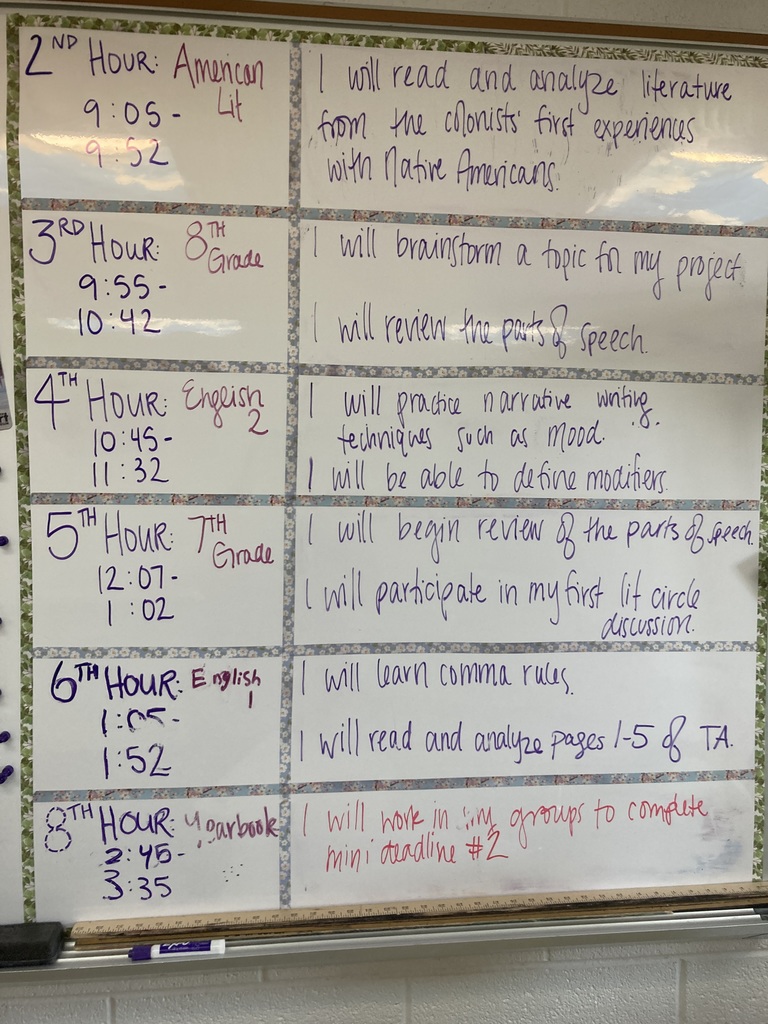 2ND HOUR: American
Lit
9:05-
9:52
I will read and analyze literature
from the colonists' first experiences
with Native Americans.
3RD HOUR: 8TH
Grade
9:55-
10:42
I will brainstorm a topic for my project.
I will review the parts of speech.
4TH HOUR: English
2
10:45-
11:32
I will practice narrative writing
techniques such as mood.
I will be able to define modifiers.
5TH HOUR: 7TH
Grade
12:07-
1:02
I will begin review of the parts of speech.
I will participate in my first lit circle
discussion.
6TH HOUR: English
1
1:05-
1:52
I will learn comma rules.
I will read and analyze pages 1-5 of TA.
8TH HOUR: Yearbook
2:45-
3:35
I will work in groups to complete
mini deadline #2